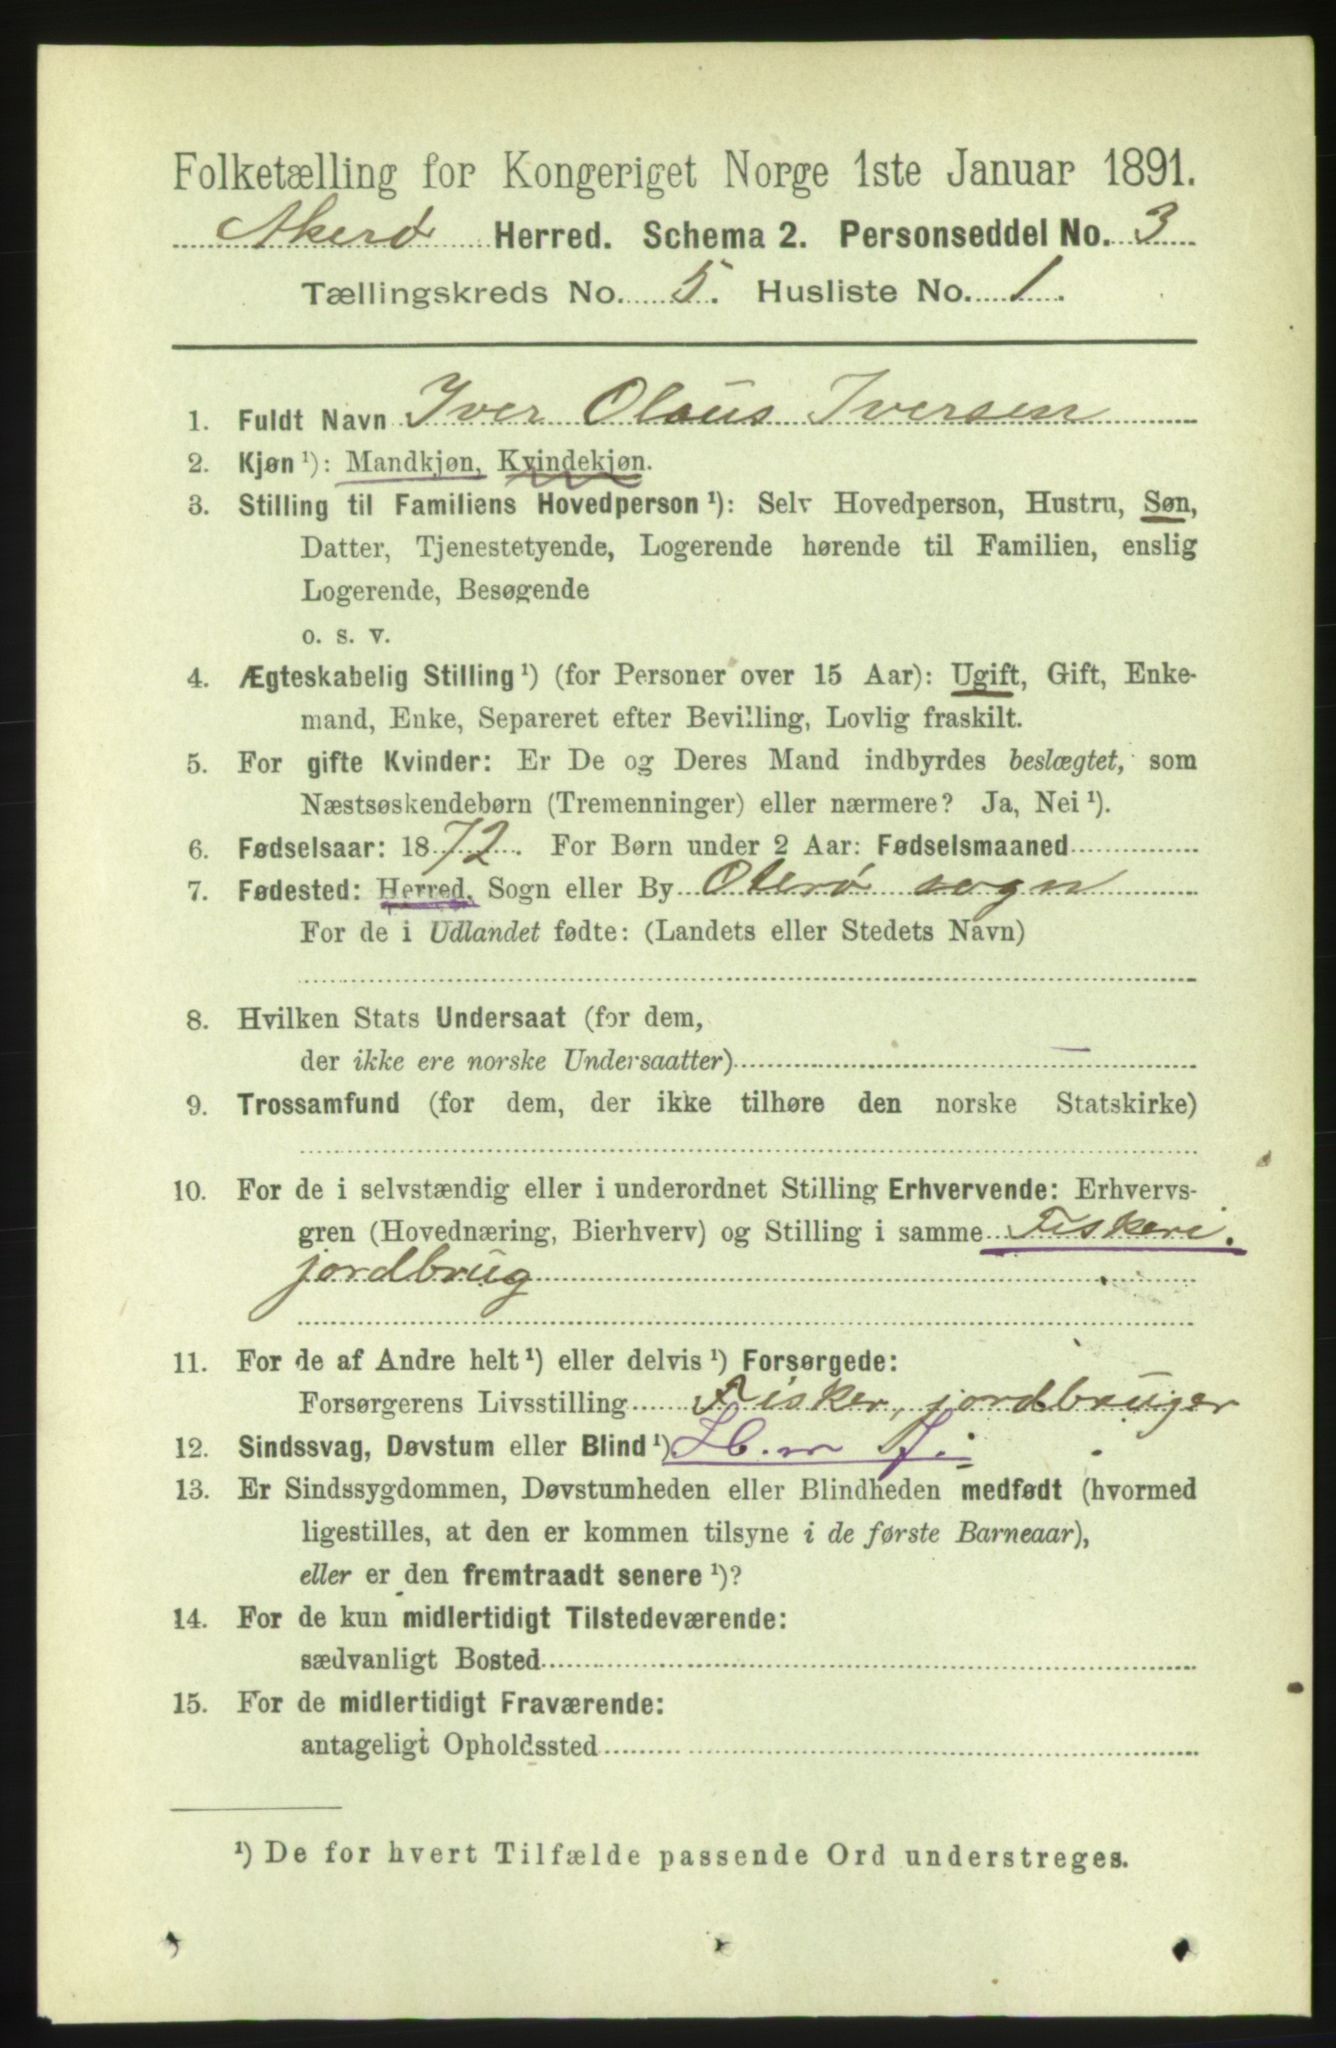 Folketælling for Kongeriget Norge 1ste Januar 1891.
Akerø Herred. Schema 2. Personseddel No. 3
Tællingskreds No. 5. Husliste No. 1.
1. Fuldt Navn Iver Olaus Iversen
2. Kjøn ¹): Mandkjøn, Kvindekjøn.
3. Stilling til Familiens Hovedperson ¹): Selv Hovedperson, Hustru, Søn,
Datter, Tjenestetyende, Logerende hørende til Familien, enslig
Logerende, Besøgende
o. s. v.
4. Ægteskabelig Stilling ¹) (for Personer over 15 Aar): Ugift, Gift, Enke-
mand, Enke, Separeret efter Bevilling, Lovlig fraskilt.
5. For gifte Kvinder: Er De og Deres Mand indbyrdes beslægtet, som
Næstsøskendebørn (Tremenninger) eller nærmere? Ja, Nei ¹).
6. Fødselsaar: 1872. For Børn under 2 Aar: Fødselsmaaned
7. Fødested: Herred, Sogn eller By sogn
For de i Udlandet fødte: (Landets eller Stedets Navn)
8. Hvilken Stats Undersaat (for dem,
der ikke ere norske Undersaatter)
9. Trossamfund (for dem, der ikke tilhøre den norske Statskirke)
10. For de i selvstændig eller i underordnet Stilling Erhvervende: Erhvervs-
gren (Hovednæring, Bierhverv) og Stilling i samme Fiskeri.
jordbrug
11. For de af Andre helt ¹) eller delvis ¹) Forsørgede:
Forsørgerens Livsstilling Fisker, jordbruger
12. Sindssvag, Døvstum eller Blind ¹)
13. Er Sindssygdommen, Døvstumheden eller Blindheden medfødt (hvormed
ligestilles, at den er kommen tilsyne i de første Barneaar),
eller er den fremtraadt senere ¹)?
14. For de kun midlertidigt Tilstedeværende:
sædvanligt Bosted
15. For de midlertidigt Fraværende:
antageligt Opholdssted
¹) De for hvert Tilfælde passende Ord understreges.